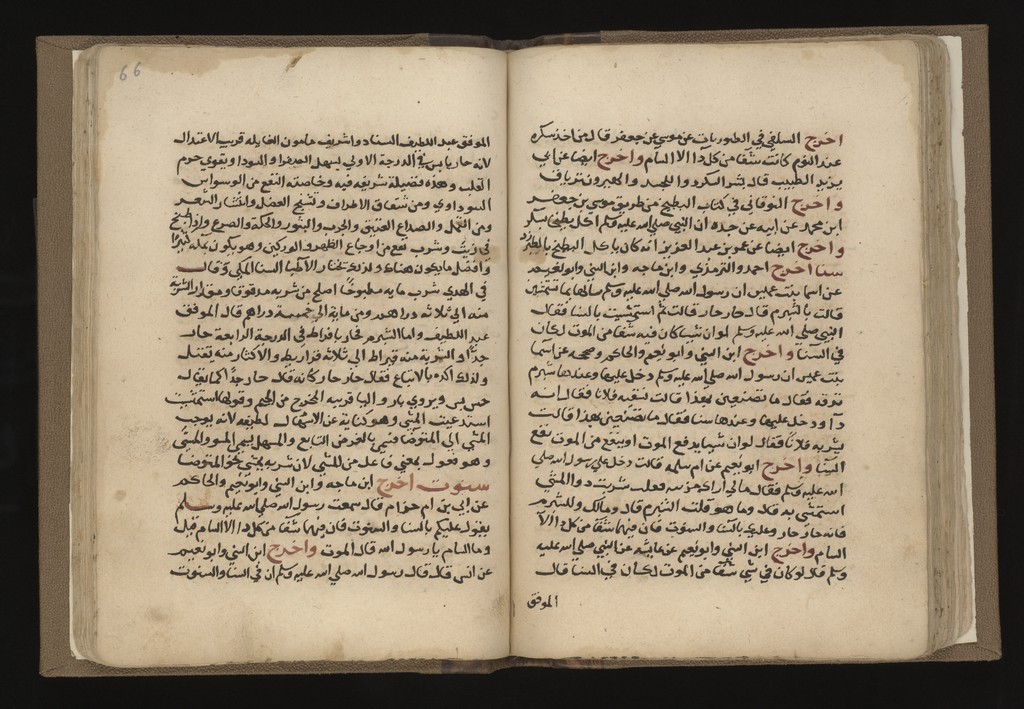 اخرج السلفي في الطيوريات عن موسى بن جعفر قال من اخذ سكره
عند النوم كانت شفا من كل دا الا السام واخرج ايضا عن ابي
يزيد الطبيب قال
واخرج النوقاني في كتاب البطيخ من طريق موسى بن جعفر
ابن محمد عن ابيه عن جده ان النبي صلى الله عليه وسلم اكل بطيخا بسكر
واخرج ايضا عن عمر بن عبد العزيز انه كان ياكل البطيخ بالطبرزد
سنا اخرج احمد والترمذي وابن ماجه وابن السني وابو نعيم
عن اسما بنت عميس ان رسول الله صلى الله عليه وسلم سالها بما تستمشين
قالت بالشبرم قال حار حار قالت ثم استمشيت بالسنا فقال
النبي صلى الله عليه وسلم لو ان شيا كان فيه شفا من الموت لكان
في السنا واخرج ابن السني وابو نعيم والحاكم وصححه عن اسما
بنت عميس ان رسول الله صلى الله عليه وسلم دخل عليها وعندها شبرم
تدقه فقال ما تصنعين بهذا قالت نسقيه فلانا فقال انه
دا ودخل عليها وعندها سنا فقال ما تصنعين بهذا قالت
يشربه فلانا فقال لو ان شيا يدفع الموت او ينفع من الموت نفع
السنا واخرج ابو نعيم عن ام سلمه قالت دخل علي رسول الله صلى
الله عليه وسلم فقال مالي اراك مرثه فقلت شربت دوا المشي
استمشي به قال وما هو قلت الشبرم قال ومالك وللشبرم
فانه حار حار وعليك بالسنا والسنوت فان فيهما شفا من كل دا الا
السام واخرج ابن السني وابو نعيم عن عايشه عن النبي صلى الله عليه
وسلم قال لو كان في شي شفا من الموت لكان في السنا قال
الموفق
66
الموفق عبد اللطيف السنا دوا شريف مامون الغايله قريب الاعتدال
لانه حار يابس في الدرجة الاولى يسهل الصفرا والسودا ويقوي جرم
القلب وهذه فضيله شريفه فيه وخاصته النفع من الوسواس
السوداوي ومن شقاق الاطراف وتشنج العضل وانتشار الشعر
ومن القمل والصداع العتيق والجرب والبثور والحكة والصرع واذا طبخ
في زيت وشرب نفع من اوجاع الظهر والوركين وهو يكون بمكه كثيرا
وافضل ما يكون هناك ولذلك تختار الاطبا السنا المكي وقال
في الهدي شرب مايه مطبوخا اصلح من شربه مدقوقا ومقدار الشربة
منه الى ثلاثه دراهم ومن مايه الى خمسة دراهم قال الموفق
عبد اللطيف واما الشبرم فحار بافراط في الدرجة الرابعة حار
جدا والشربة منه قيراط الى ثلاثه قراريط والاكثار منه يقتل
ولذلك اكده بالاتباع فقال حار حار كانه قال حار جدا كما يقال
حسن بسن ويروى يار واليا قريبة المخرج من الجيم وقولها استمشيت
استدعيت المشي وهو كناية عن الاسهال لطيفه لانه يوجب
المشي الى المتوضا فسمي بالغرض التابع والمسهل يسمى المشو والمشي
وهو فعول بمعنى فاعل من المشي لان شربه يمشي نحو المتوضا
سنوت اخرج ابن ماجه وابن السني وابو نعيم والحاكم
عن ابي بن ام حرام قال سمعت رسول الله صلى الله عليه وسلم
يقول عليكم بالسنا والسنوت فان فيهما شفا من كل دا الا السام قيل
وما السام يا رسول الله قال الموت واخرج ابن السني وابو نعيم
عن انس قال قال رسول الله صلى الله عليه وسلم ان في السنا والسنوت